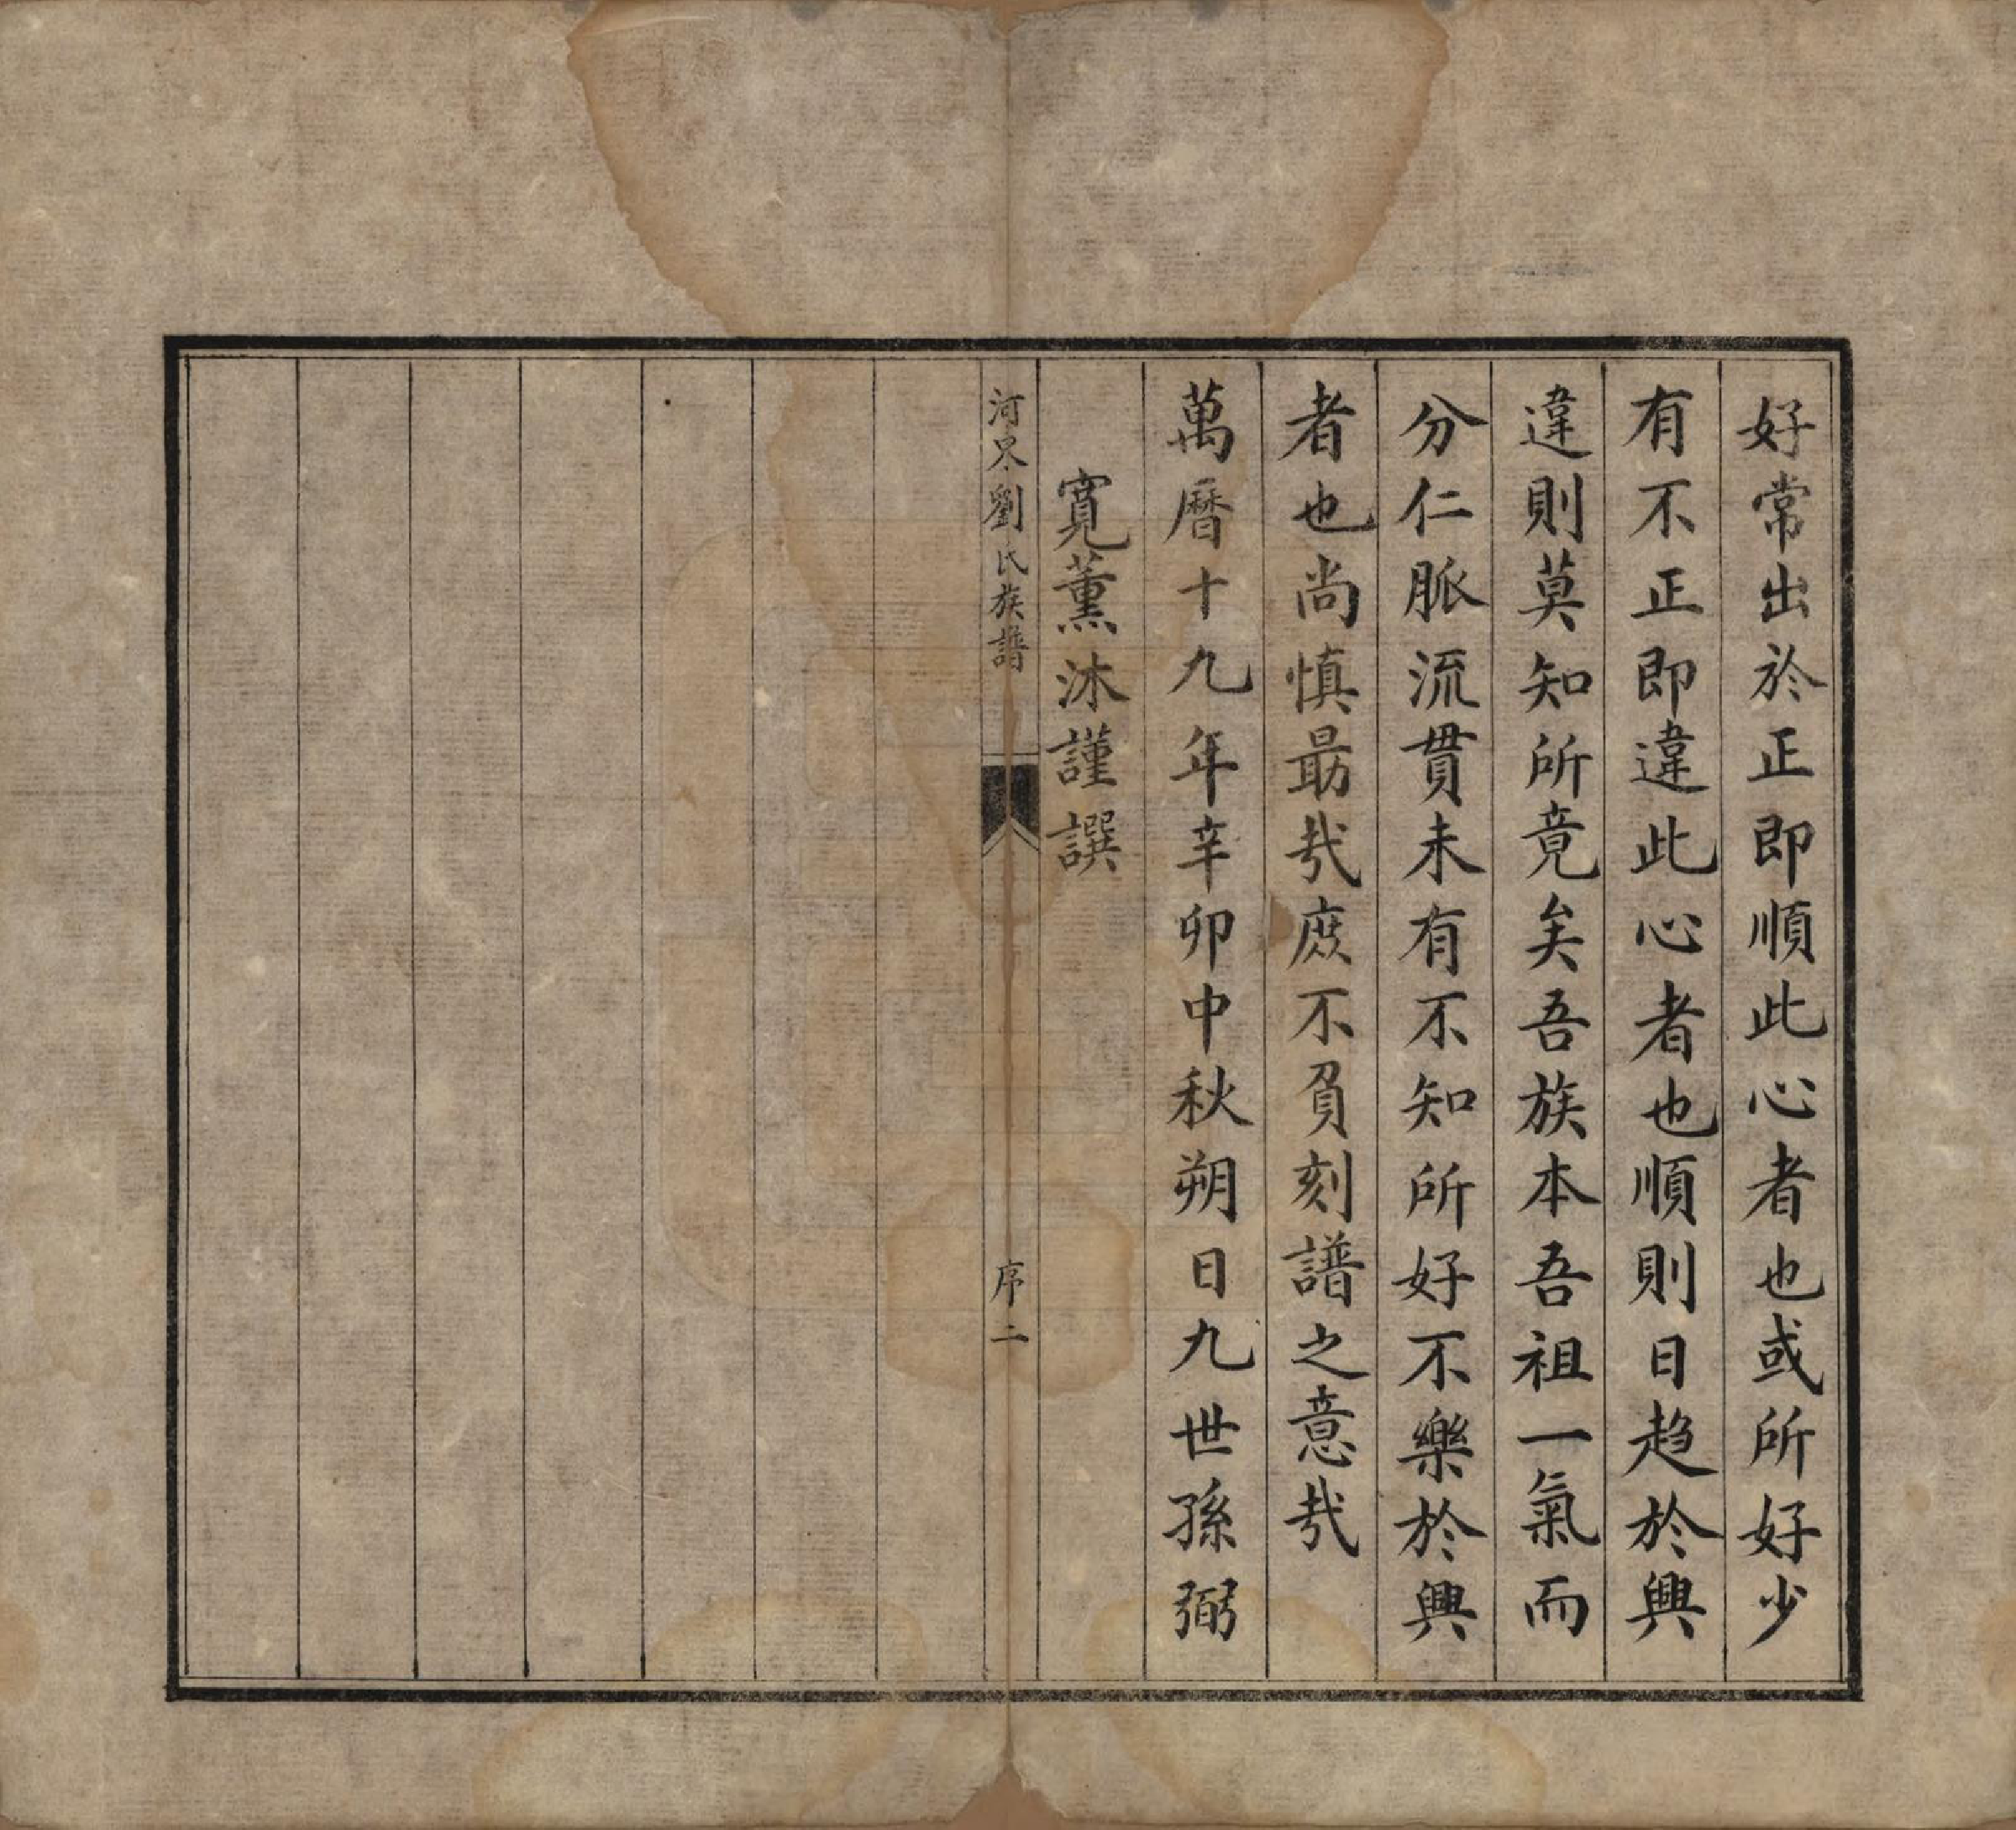 好常出於正即順此心者也或所好少
有不正即違此心者也順則日趋於興
違則莫知所竟矣吾族本吾祖一氣而
分仁脈流貫未有不知所好不樂於興
者也尚慎勗哉庶不負刻譜之意哉
萬曆十九年辛卯中秋朔日九世孫弼
寬薰沐謹譔
河⿱口氺劉氏族譜
序二